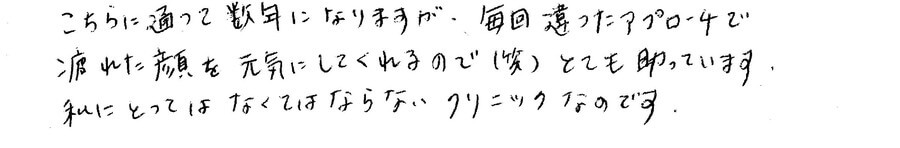 こちらに通って数年になりますが、毎回違ったアプローチで
疲れた顔を元気にしてくれるので（笑）とても助っています．
私にとってはなくてはならないクリニックなのです．